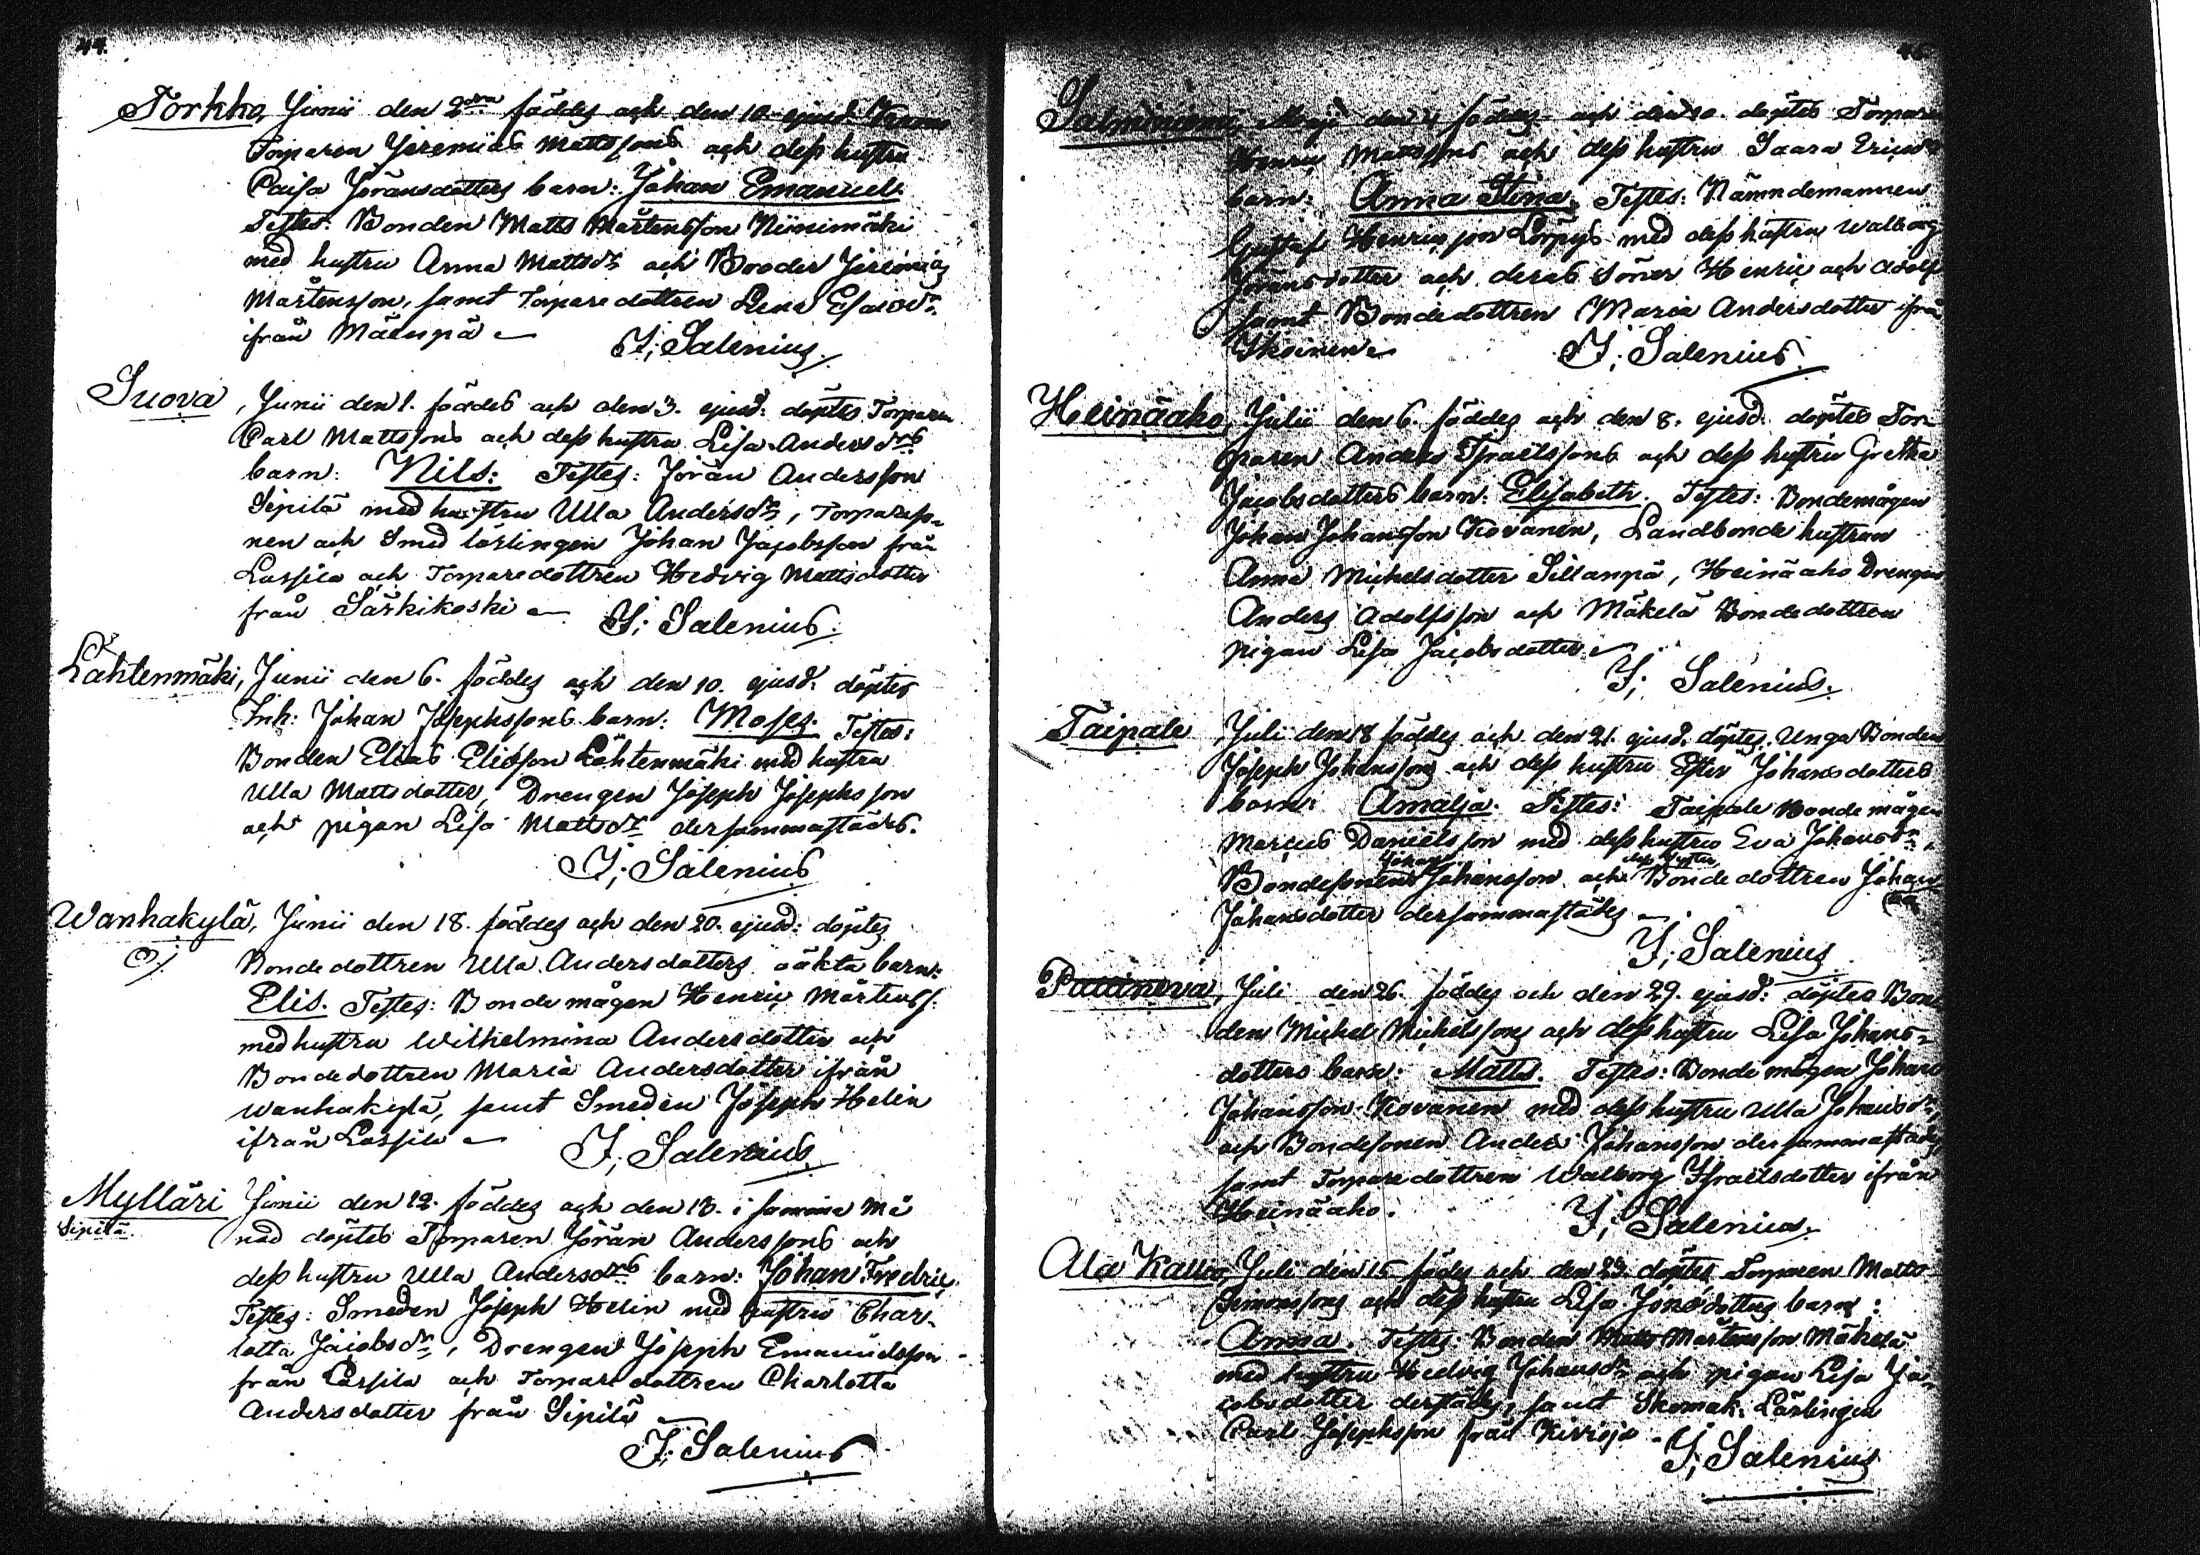 44.
Torkko, Junii den 2dra föddes och den 10 ejusd
Torparen Jeremias Mattssons och dess hustru
Caisa Jöransdotters barn: Johan Emanuel.
Testes: Bonden Matts Mårtensson Niinimäki
med hustru Anna Mattsdr och Broder Jeremias
Mårtensson, samt Torparedottren Lena Esaiædr
ifrån Mäenpä
J; Salenius.
Suova, Junii den 1. föddes och den 3. ejusd: döptes Torparen
Carl Mattssons och dess hustru Lisa Andersdrs
barn: Nils: Testes: Jöran Andersson
Sipilä med hustru Ulla Andersdr, Torpareso-
nen och Smed lärlingen Johan Jacobsson från
Lassila och Torparedottren Hedvig Mattsdotter
från Särkikoski
J; Salenius.
Lähtenmäki, Junii den 6. föddes och den 10. ejusd: döptes
Inh: Johan Josephssons barn: Moses. Testes:
Bonden Elias Eliasson Lähtenmäki med hustru
Ulla Mattsdotter, Drengen Joseph Josephsson
och pigan Lisa Mattsdr dersammastädes.
J; Salenius
Wanhakylä, Junii den 18. föddes och den 20. ejusd: döptes
Bondedottren Ulla Andersdotters oäkta barn:
Elis. Testes: Bondemågen Henric Mårtenss:
med hustru Wilhelmina Andersdotter och
Bondedottren Maria Andersdotter ifrån
Wanhakylä, samt Smeden Joseph Helin
ifrån Lassila
J; Salenius
Mylläri Junii den 12. föddes och den 18. i samma Må
Sipilä. nad döptes Torparen Jöran Anderssons och
dess hustru Ulla Andersdrs barn: Johan Fredric.
Testes: Smeden Joseph Helin med hustru Char-
lotta Jacobsdr, Drengen Joseph Emanuelsson
från Lassila och Torparedottren Charlotta
Andersdotter från Sipilä
J; Salenius
Maji den föddes och den 10. döptes Torparen
Henric Mattssons och dess hustru Saara Ericsdrs
barn: Anna Stina. Testes: Nämndemannen
Gustaf Henricsson Lörpys med dess hustru Walborg
Jöransdotter och deras Söner Henric och Adolf
samt Bondedottren Maria Andersdotter ifrån
Ikoinen
J; Salenius.
Heinäaho, Julii den 6. föddes och den 8. ejusd: döptes Tor-
paren Anders Israelssons och dess hustru Gretha
Jacobsdotters barn: Elisabeth. Testes: Bondemågen
Johan Johansson Kovanen, Landbonde hustrun
Anna Michelsdotter Sillanpä, Heinäaho Drengen
Anders Adolfsson och Mäkelä Bondedottren
pigan Lisa Jacobsdotter
J; Salenius.
Taipale, Juli den 18 föddes och den 21. ejusd: döptes Unga Bonden
Joseph Johanssons och dess hustru Ester Johansdotters
barn: Amalja. Testes: Taipale Bonde mågen
Marcus Danielsson med dess hustru Eva Johansdr,
Johan dess hustru
Bondesonen Johansson och Bondedottren Johan
na
Johansdotter dersammastädes
J; Salenius
Juli den 26. föddes och den 29. ejusd: döptes Bon-
den Michel Michelssons och dess hustru Lisa Johans-
dotters barn: Matts. Testes: Bonde mågen Johan
Johansson Kovanen med dess hustru Ulla Johansdr
och Bondesonen Anders Johansson dersammastädes
samt Torparedottren Walborg Israelsdotter ifrån
Heinäaho.
J; Salenius.
Ala Kallio, Juli den 15 föddes och den 23. döptes Torparen Matts
Simonssons och dess hustru Lisa Jonsdotters barn:
Anna. Testes: Bonden Matts Mårtensson Mäkelä
med hustru Hedvig Johansdr och pigan Lisa Ja-
cobsdotter derstädes, samt Skomak: Lärlingen
Carl Josephsson från Kirrioja
J; Salenius